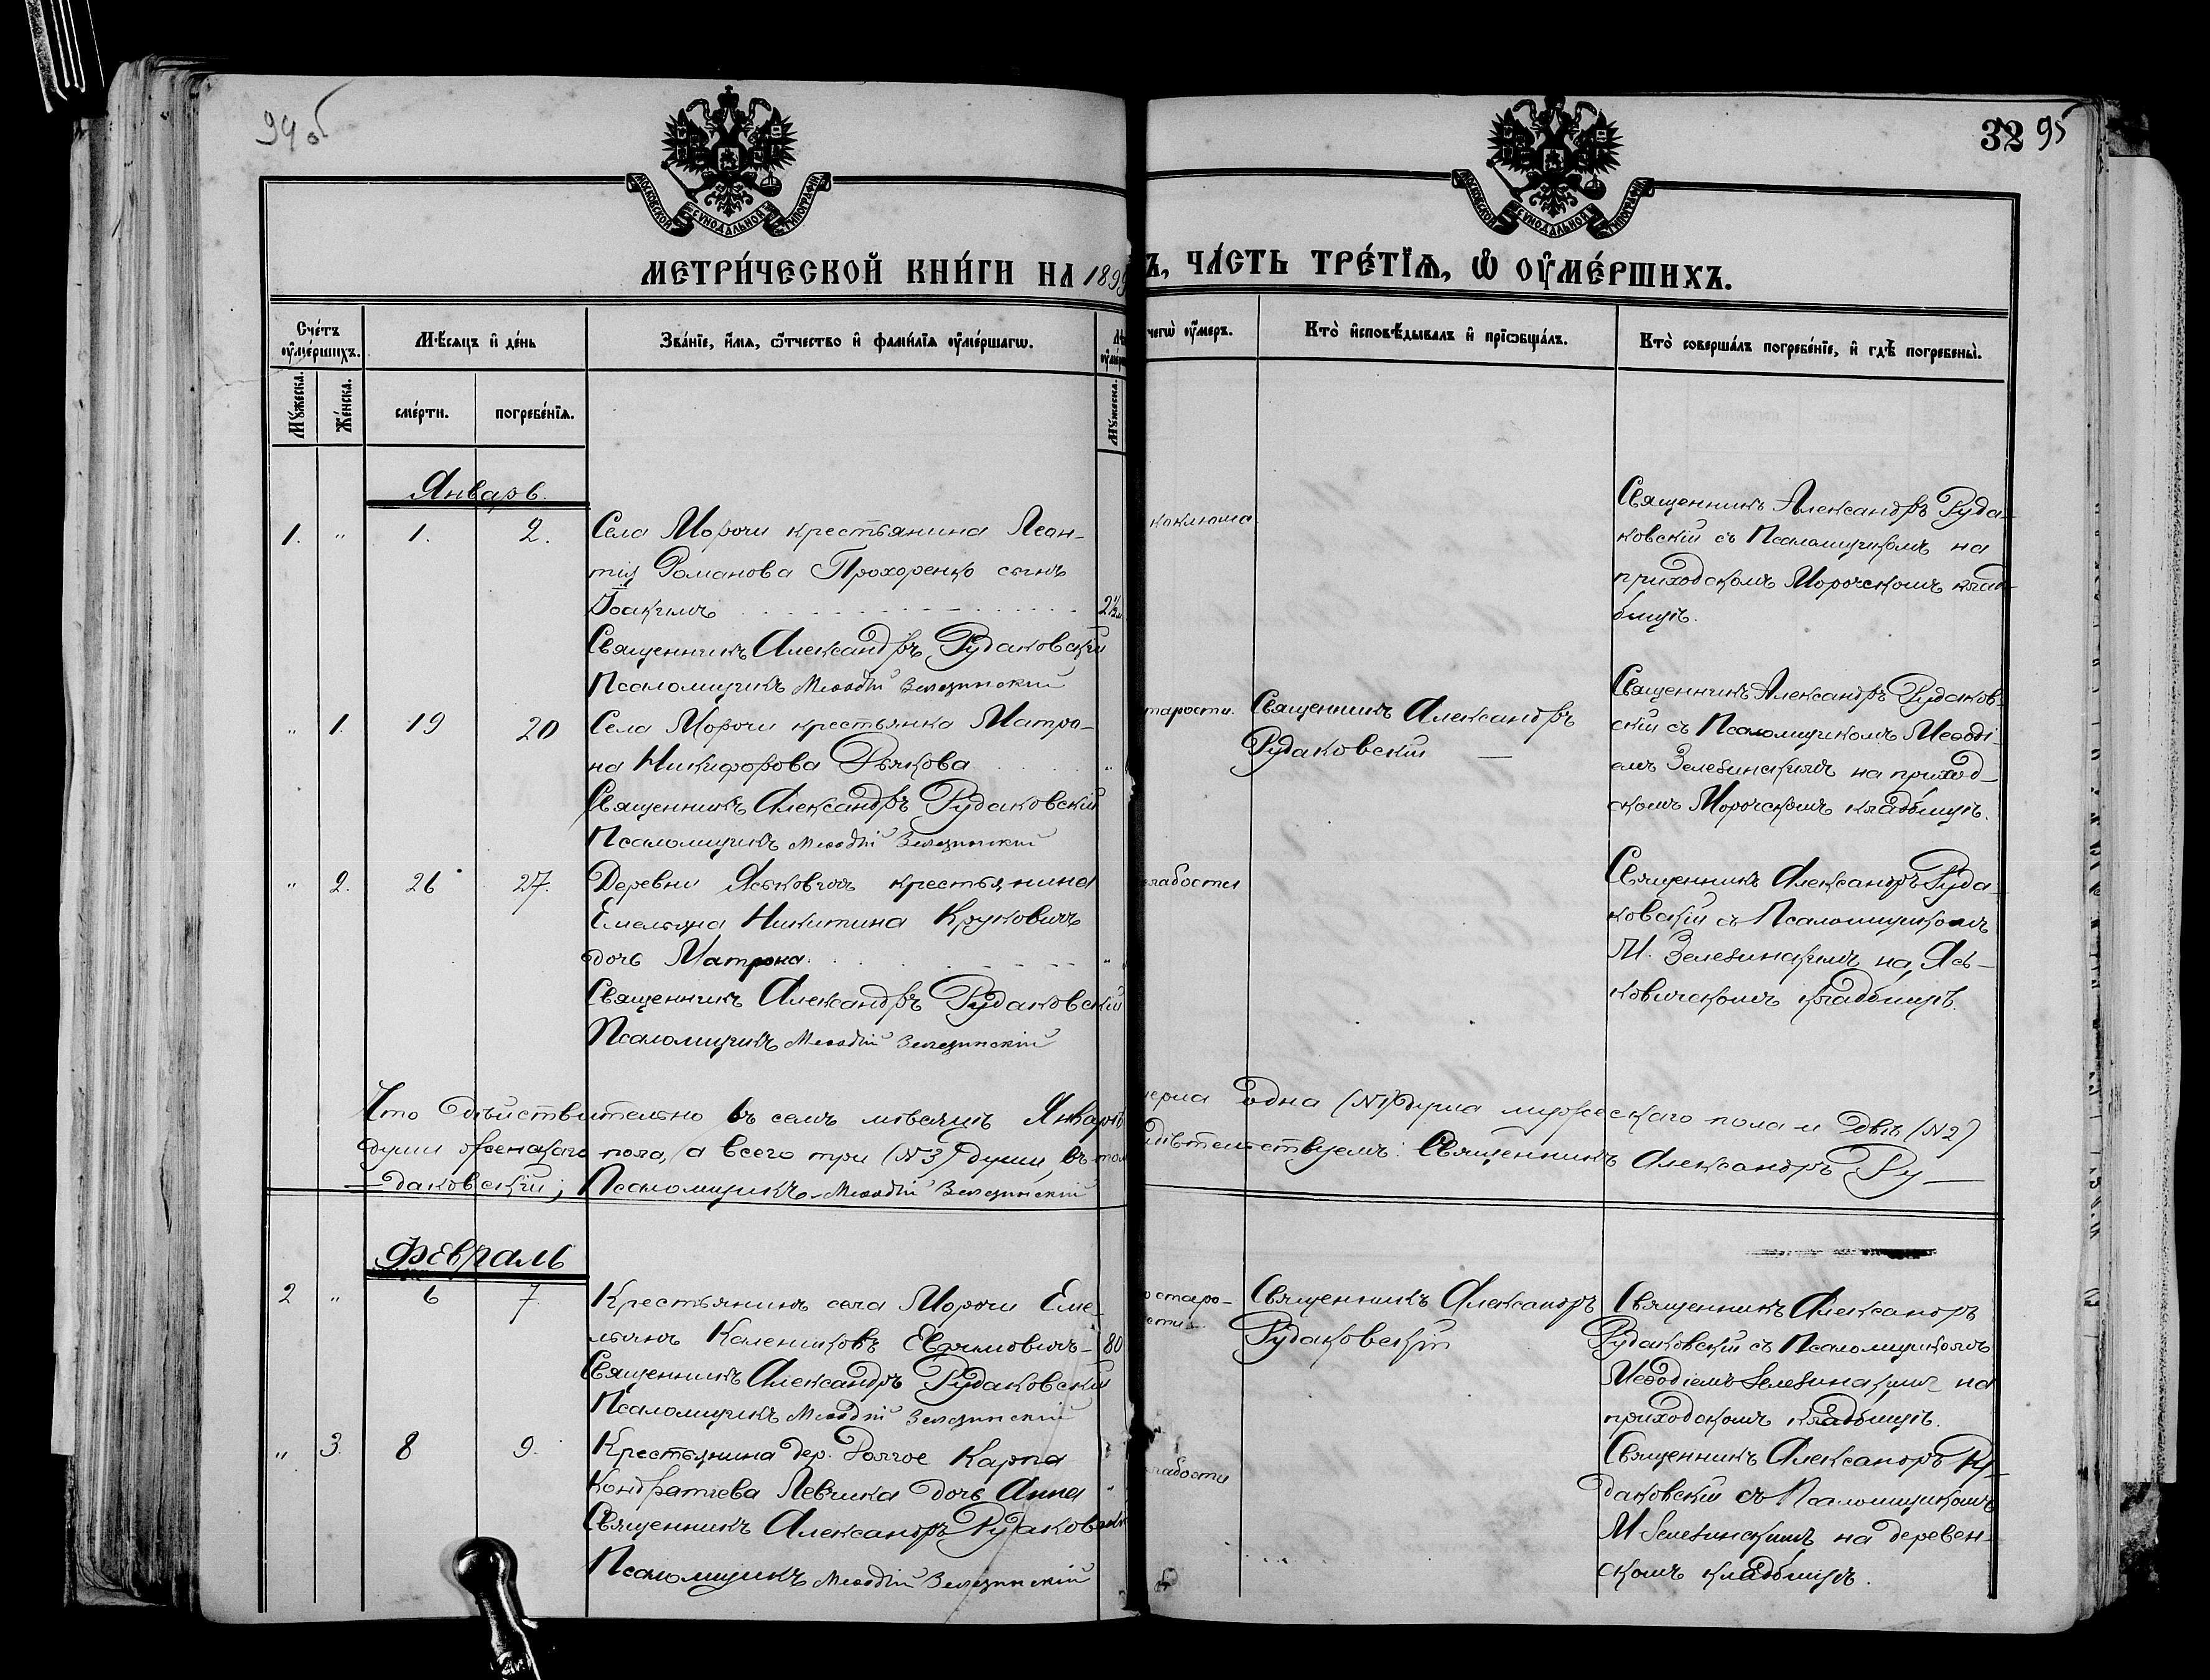 94 об
32 95
МОСКОВСКОЙ СѴНОДАЛЬНОЙ ТИПОГРАФІИ
МОСКОВСКОЙ СѴНОДАЛЬНОЙ ТИПОГРАФІИ
МЕТРИ́ЧЕСКОЙ КНИ́ГИ НА 1899
Ъ, ЧА́СТЬ ТРЕ́ТІѦ, Ѡ ОУ҆МЕ́РШИХЪ.
Сче́тъ
оу҆ме́ршихъ.
Мꙋ́жеска.
Же́нска.
Мѣ́сяцъ и҆ де́нь
сме́рти.
погребе́нїѧ.
Зва́нїе, и҆́мѧ, ѻ҆́тчество и҆ фами́лїѧ оу҆ме́ршагѡ.
Мꙋ́жеска.
чегѡ̀ оу҆́меръ.
Кто̀ и҆сповѣ́дывалъ и҆ прїѡбща́лъ.
Кто̀ соверша́лъ погребе́нїе, и҆ гдѣ̀ погребены̀.
Январь.
1. " 1. 2.
Села Морочи крестьянина Леон-
тія Романова Прохоренко сынъ
Іоакимъ
2½
Священникъ Александръ Рудаковскій
Псаломщикъ Меѳодій Зелезинскій
коклюша
Священникъ Александръ Руда-
ковскій съ Псаломщикомъ на
приходскомъ Морочскомъ клад-
бищѣ.
" 1. 19 20
Села Морочи крестьянка Матро-
на Никифорова Дьякова
Священникъ Александръ Рудаковскій
Псаломщикъ Меѳодій Зелезинскій
тарости.
Священникъ Александръ
Рудаковскій
Священникъ Александръ Рудаков-
скій съ Псаломщикомъ Меѳоді-
емъ Зелезинскимъ на приход-
скомъ Морочскомъ кладбищѣ.
" 2. 26 27.
Деревни Яськовичъ крестьянина
Емельяна Никитина Круковичъ
дочь Матрона
Священникъ Александръ Рудаковскій
Псаломщикъ Меѳодій Зелезинскій
лабости
Священникъ Александръ Руда-
ковскій съ Псаломщикомъ
М. Зелезинскимъ на Ясь-
ковичскомъ кладбищѣ.
Что дѣйствительно въ семъ мѣсяцѣ Январѣ
мерла одна (№1) душа мужескаго пола и двѣ (№2)
души женскаго пола, а всего три (№3) души, въ том
идѣтельствуемъ: Священникъ Александръ Ру-
даковскій; Псаломщикъ Меѳодій Зелезинскій
Февраль
2 " 6 7.
Крестьянинъ села Морочи Еме-
льянъ Калениковъ Евѳимовичъ 80
Священникъ Александръ Рудаковскій
Псаломщикъ Меѳодій Зелезинскій
о старо-
сти
Священникъ Александръ
Рудаковскій
Священникъ Александръ
Рудаковскій съ Псаломщикомъ
Меѳодіемъ Зелезинскимъ на
приходскомъ кладбищѣ.
" 3. 8 9.
Крестьянина дер. Долгое Карпа
Кондратіева Левчика дочь Анна
Священникъ Александръ Рудаковскій
Псаломщикъ Меѳодій Зелезинскій
лабости
Священникъ Александръ Ру-
даковскій съ Псаломщикомъ
М Зелезинскимъ на деревен-
скомъ кладбищѣ.